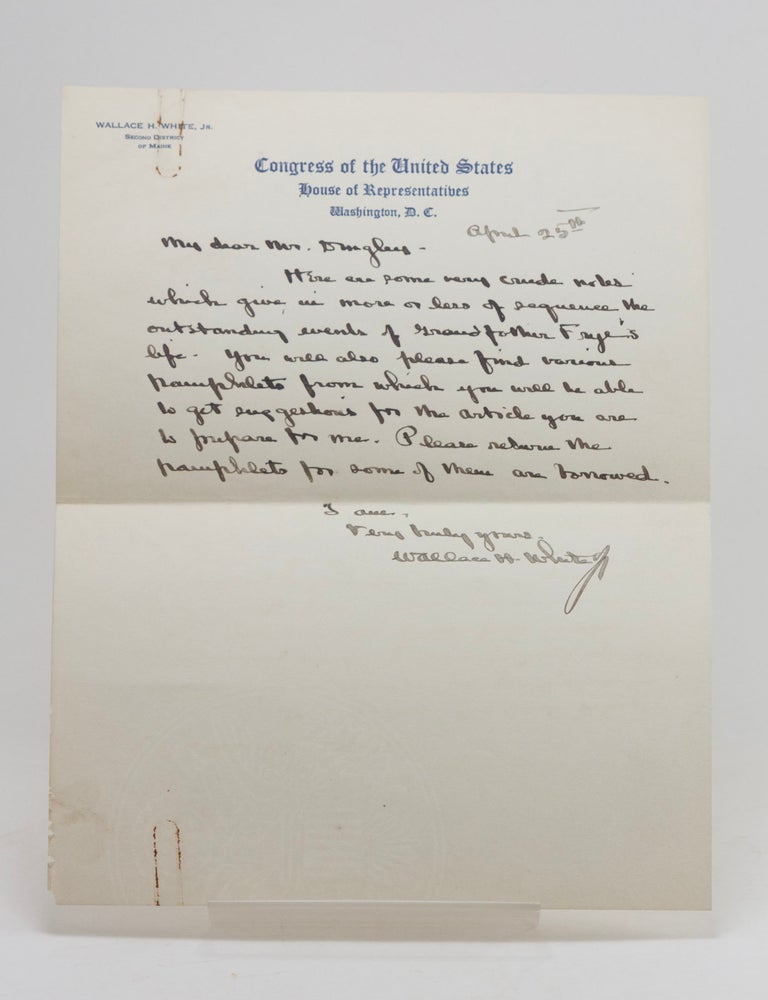 WALLACE H. WHITE, JR.
SECOND DISTRICT
OF MAINE
Congress of the United States
House of Representatives
Washington, D. C.
April 25th
My dear Mr. Dingley -
Here are some very crude notes
which give in more or less of sequence the
outstanding events of Grandfather Frye's
life. You will also please find various
pamphlets from which you will be able
to get suggestions for the article you are
to prepare for me. Please return the
pamphlets for some of them are borrowed.
I am,
Very truly yours,
Wallace H White Jr